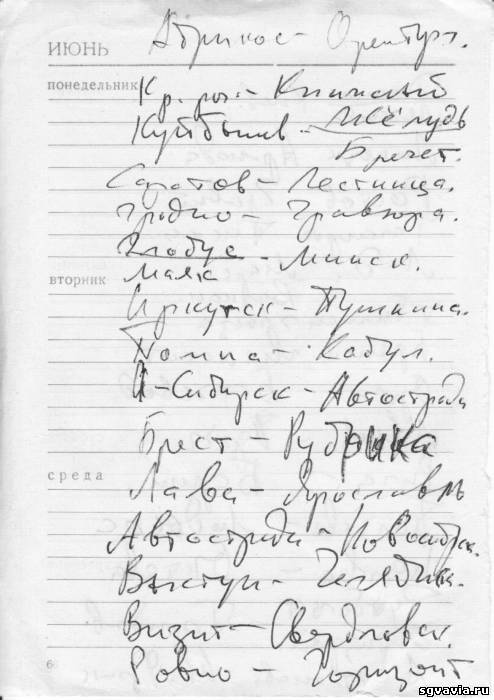 ИЮНЬ
Абрикос - Оренбург.
понедельник
Кр-ры - Книжный
Куйбышев - Жёлудь
Бречет.
Саратов - Лестница.
Гродно - Гравюра.
Глобус - Минск.
Маяк
вторник
Иркутск - Пушнина.
Помпа - Кабул.
Н-Сибирск - Автострада
Брест - Рубрика
среда
Лава - Ярославль
Автострада - Новосибрск.
Выступ - Челябинк.
Визит - Свердловск.
Ровно - Горизонт
sgvavia.ru